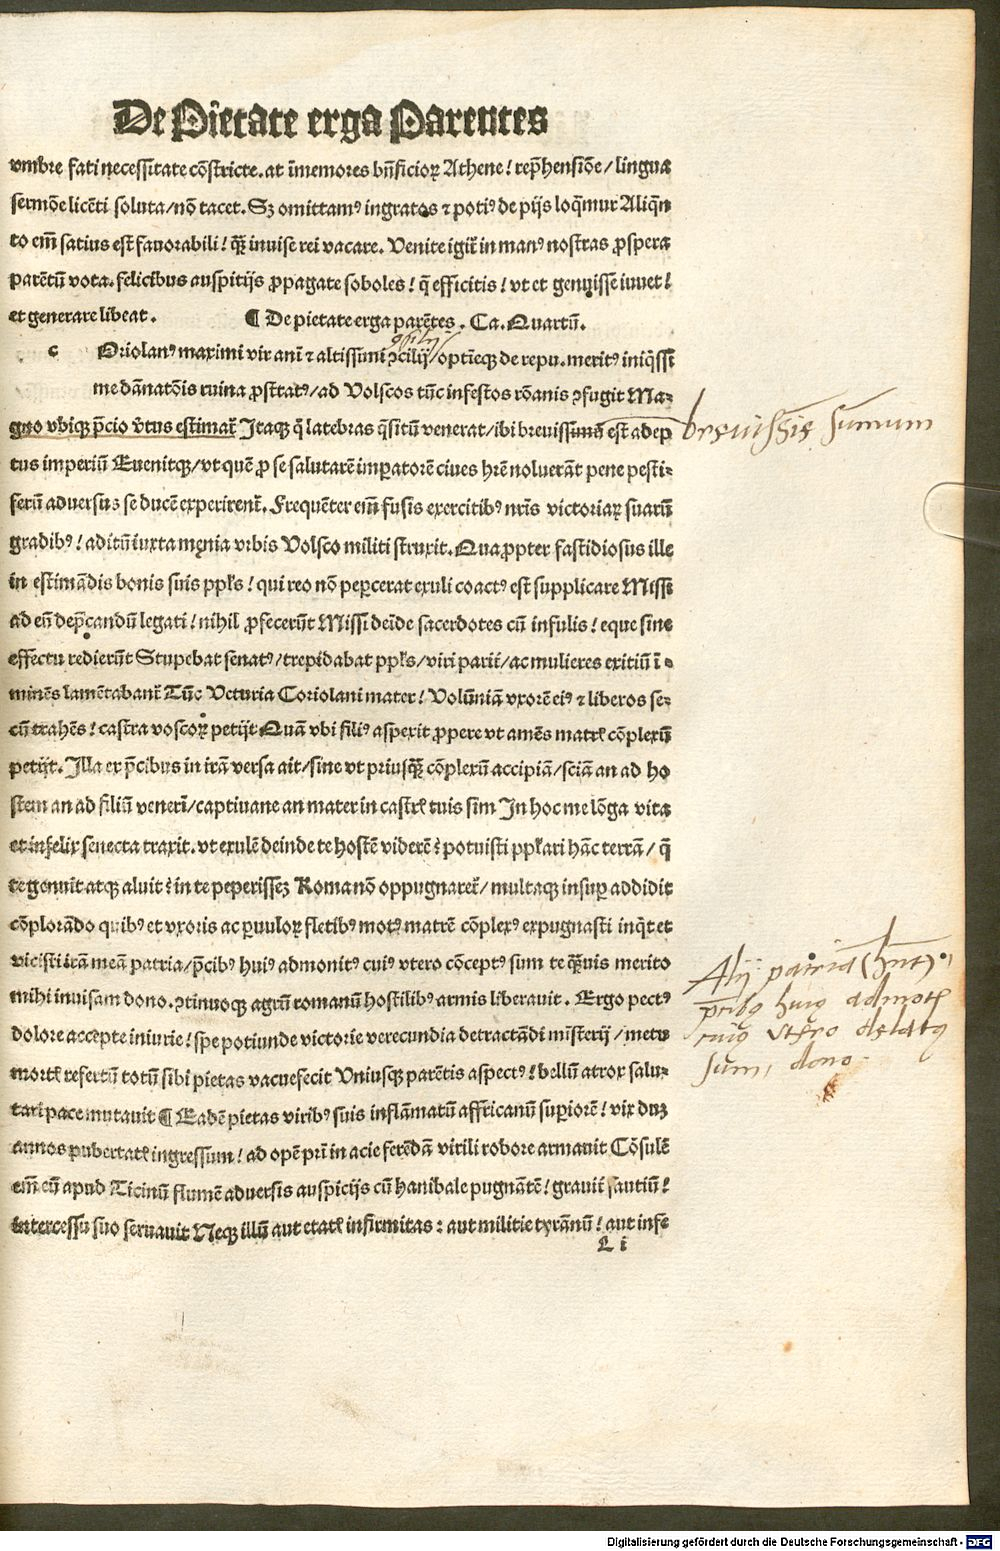 De Pietate erga Parentes
vmbre fati necessitate cõstricte. at ĩmemores bñficioꝝ Athene! rep̃hensiõe / lingua
sermõe licẽti soluta / nõ tacet. Sꝫ omittamꝰ ingratos ⁊ potiꝰ de pijs loq̃mur Aliq̃n
to em̃ satius est fauorabili! q̃ꝫ inuise rei vacare. Venite igit̃ in manꝰ nostras ꝓspera
parẽtũ vota. felicibus auspitijs ꝓpagate soboles! q̃ efficitis! vt et genuisse iuuet!
et generare libeat. ¶ De pietate erga parẽtes. Ca. Quartũ.
c Oriolanꝰ maximi vir anĩ ⁊ altissimi ↄcilij / optieq̃ de repu. meritꝰ iniq̃ssi
ↄsilij
me dãnatõis ruina ꝓstratꝰ / ad Volscos tũc infestos rõanis ↄfugit Ma⸗
gno vbiqꝫ p̃cio v̾tus estimat̃ Itaqꝫ q̃ latebras q̃sitũ venerat / ibi breuissimũ est adep
breuissi⁊ sumum
tus imperiũ Euenitqꝫ / vt quẽ ꝓ se salutarẽ imꝑatorẽ ciues hr̃e noluerãt pene pesti⸗
ferũ aduersus se ducẽ experirent̃. Frequẽter em̃ fusis exercitibꝰ nr̃is victoriaꝝ suarũ
gradibꝰ! aditũ iuxta męnia vrbis Volsco militi struxit. Qua ꝓpter fastidiosus ille
in estimãdis bonis suis ppl̃s! qui reo nõ peꝑcerat exuli coactꝰ est supplicare Missi
ad eũ dep̃candũ legati! nihil ꝓfecerũt Missi deĩde sacerdotes cũ infulis! eque sine
effectu redierũt Stupebat senatꝰ / trepidabat ppl̃s / viri parii / ac mulieres exitiũ ĩ⸗
minẽs lamẽtabant̃ Tũc Vcturia Coriolani mater! Volũniã vxorẽ eiꝰ ⁊ liberos se⸗
cũ trahẽs! castra voscoꝝ petijt Quã vbi filiꝰ aspexit ꝓpere vt amẽs matrẽ cõplexũ
petijt. Illa ex p̃cibus in irã versa ait / sine vt priusq̃ꝫ cõplexũ accipiã / sciã an ad ho
stem an ad filiũ venerĩ / captiuane an mater in castrꝭ tuis sim In hoc me lõga vita
et infelix senecta traxit. vt exulẽ deinde te hostẽ viderẽ? potuisti ppl̃ari hãc terrã / q̃
te genuit atqꝫ aluit? in te peperissẽ Roma nõ oppugnaret̃ / multaqꝫ insuꝑ addidit
cõplorãdo quibꝰ et vxoris ac ꝑuuloꝝ fletibꝰ motꝰ matrẽ cõplexꝰ expugnasti inq̃t et
vicisti irã meã patria / p̃cibꝰ huiꝰ admonitꝰ cuiꝰ vtero cõceptꝰ sum te q̃ꝫuis merito
Alij patria (hñt).
mihi inuisam dono. ↄtinuoqꝫ agrũ romanũ hostilibꝰ armis liberauit. Ergo pectꝰ
p̃cibꝰ huiꝰ admotꝭ
dolore accepte iniurie! spe potiunde victorie verecundia detractãdi mĩsterij / metu
cuiꝰ vtero delatꝰ
mortꝭ refertũ totũ sibi pietas vacuefecit Vniusqꝫ parẽtis aspectꝰ! bellũ atrox salu⸗
sum, dono
tari pace mutauit ¶ Eadẽ pietas viribꝰ suis inflãmatũ affricanũ suꝑiorẽ! vix duꝫ
annos pubertatꝭ ingressum! ad opẽ pr̃i in acie ferẽdã virili robore armauit Cõsulẽ
em̃ eũ apud Ticinũ flumẽ aduersis auspicijs cũ hanibale pugnãtẽ! grauiĩ sautiũ!
intercessu suo seruauit Neqꝫ illũ aut etatꝭ infirmitas: aut militie tyrãnũ! aut infe
L i
Digitalisierung gefördert durch die Deutsche Forschungsgemeinschaft - DFG